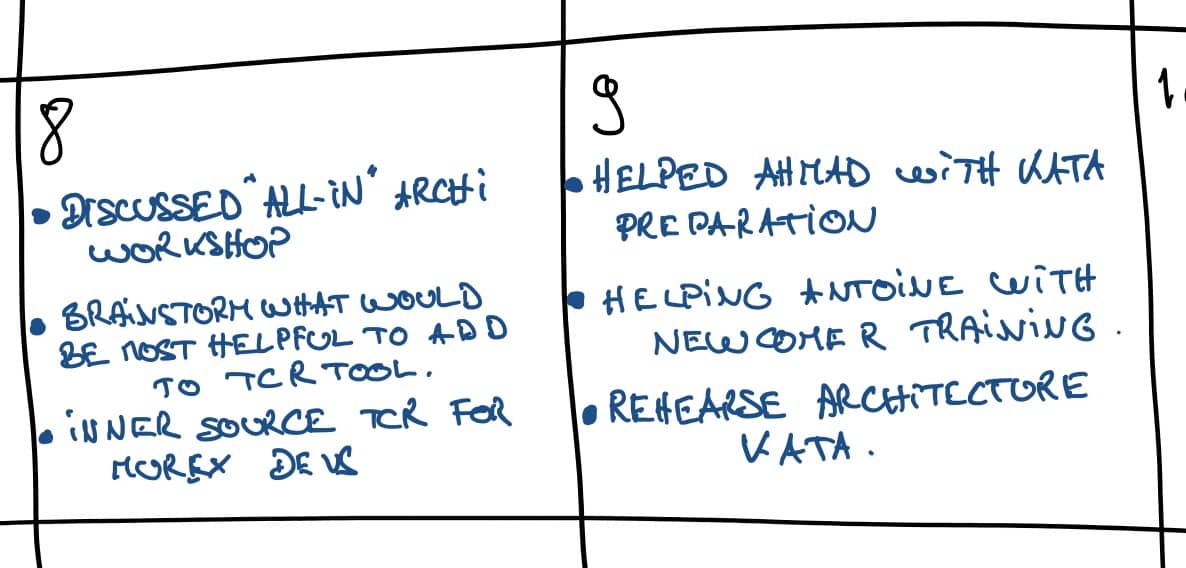 8
• DISCUSSED "ALL-IN" ARCHI
WORKSHOP
• BRAINSTORM WHAT WOULD
BE MOST HELPFUL TO ADD
TO TCR TOOL.
• INNER SOURCE TCR FOR
MOREX DEVS
9
• HELPED AHMAD WITH KATA
PREPARATION
• HELPING ANTOINE WITH
NEWCOMER TRAINING.
• REHEARSE ARCHITECTURE
KATA.